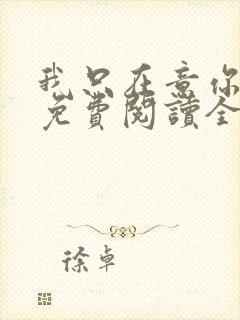 我只在意你
免費閱讀全
徐卓